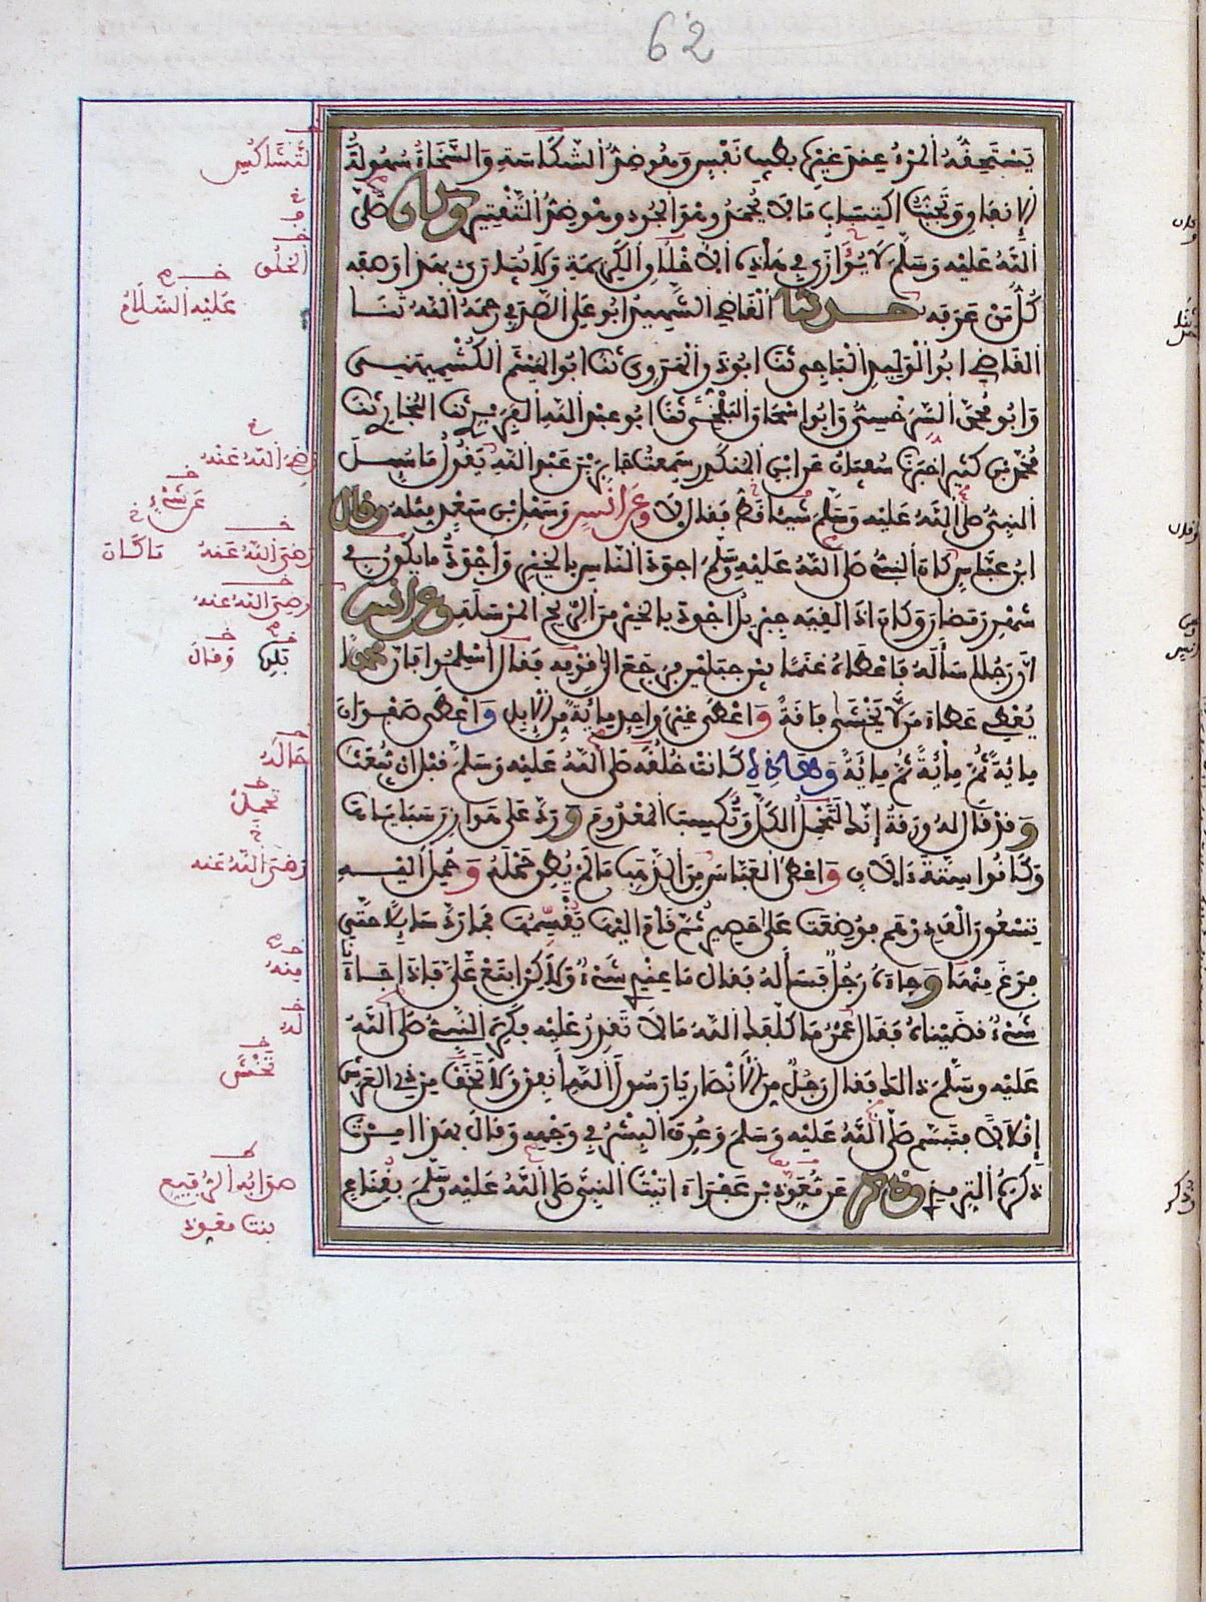 62
يَسْتَحِقُّهُ الْمَرْءُ عِنْدَ غَيْرِهِ بِطِيبِ نَفْسٍ وَهُوَ ضِدُّ الشَّكَاسَةِ وَالسَّخَاءُ سُهُولَةُ
الْإِنْفَاقِ وَتَجَنُّبُ اكْتِسَابِ مَا لَا يُحْمَدُ وَهُوَ الْجُودُ وَهُوَ ضِدُّ التَّقْتِيرِ وَكَانَ صَلَّى
اللَّهُ عَلَيْهِ وَسَلَّمَ لَا يُوَازَى فِي هَذِهِ الْأَخْلَاقِ الْكَرِيمَةِ وَلَا يُبَارَى بِهَذَا وَصَفَهُ
كُلُّ مَنْ عَرَفَهُ حدثنا الْقَاضِي الشَّهِيدُ أَبُو عَلِيٍّ الصَّدَفِيُّ رحمه اللَّهُ ثَنَا
الْقَاضِي أَبُو الْوَلِيدِ الْبَاجِيُّ ثَنَا أَبُو ذَرٍّ الْهَرَوِيُّ ثَنَا أَبُو الْهَيْثَمِ الْكُشْمِيهَنِي
وَأَبُو مُحَمَّدٍ السَّرَخْسِيُّ وَأَبُو إِسْحَاقَ الْبَلْخِيُّ ثَنَا أَبُو عَبْدِ اللَّهِ الْفَرَبْرِيُّ ثَنَا الْبُخَارِيُّ ثَنَا
مُحَمَّدُ بْنُ كَثِيرٍ أَخْبَرَنَا سُفْيَانُ عَنِ ابْنِ الْمُنْكَدِرِ سَمِعْتُ جَابِرَ بْنَ عَبْدِ اللَّهِ يَقُولُ مَا سُئِلَ
النَّبِيُّ صَلَّى اللَّهُ عَلَيْهِ وَسَلَّمَ شَيْئًا قَطُّ فَقَالَ لَا وَعَنْ أَنَسٍ وَسَهْلِ بْنِ سَعْدٍ مِثْلُهُ وَقَالَ
ابْنُ عَبَّاسٍ كَانَ النَّبِيُّ صَلَّى اللَّهُ عَلَيْهِ وَسَلَّمَ أَجْوَدَ النَّاسِ بِالْخَيْرِ وَأَجْوَدُ مَا يَكُونُ فِي
شَهْرِ رَمَضَانَ وَكَانَ إِذَا لَقِيَهُ جِبْرِيلُ أَجْوَدَ بِالْخَيْرِ مِنَ الرِّيحِ الْمُرْسَلَةِ وَعَنْ أَنَسٍ
أَنَّ رَجُلًا سَأَلَهُ فَأَعْطَاهُ غَنَمًا بَيْنَ جَبَلَيْنِ فَرَجَعَ إِلَى قَوْمِهِ فَقَالَ أَسْلِمُوا فَإِنَّ مُحَمَّدًا
يُعْطِي عَطَاءَ مَنْ لَا يَخْشَى فَاقَةً وَأَعْطَى غَيْرَ وَاحِدٍ مِائَةً مِنَ الْإِبِلِ وَأَعْطَى صَفْوَانَ
مِائَةً ثُمَّ مِائَةً ثُمَّ مِائَةً وَهَذِهِ كَانَتْ خُلُقُهُ صَلَّى اللَّهُ عَلَيْهِ وَسَلَّمَ قَبْلَ أَنْ يُبْعَثَ
وَقَدْ قَالَ لَهُ وَرَقَةُ إِنَّكَ لَتَحْمِلُ الْكَلَّ وَتُكْسِبُ الْمَعْدُومَ وَرَدَّ عَلَى هَوَازِنَ سَبَايَاهَا
وَكَانُوا سِتَّةَ آلَافٍ وَأَعْطَى الْعَبَّاسَ مِنَ الذَّهَبِ مَا لَمْ يُطِقْ حَمْلَهُ وَحُمِلَ إِلَيْهِ
تِسْعُونَ أَلْفَ دِرْهَمٍ فَوُضِعَتْ عَلَى حَصِيرٍ ثُمَّ قَامَ إِلَيْهَا يَقْسِمُهَا فَمَا رَدَّ سَائِلًا حَتَّى
فَرَغَ مِنْهَا وَجَاءَهُ رَجُلٌ فَسَأَلَهُ فَقَالَ مَا عِنْدِي شَيْءٌ وَلَكِنِ ابْتَعْ عَلَيَّ فَإِذَا جَاءَنَا
شَيْءٌ قَضَيْنَاهُ فَقَالَ عُمَرُ مَا كَلَّفَكَ اللَّهُ مَا لَا تَقْدِرُ عَلَيْهِ فَكَرِهَ النَّبِيُّ صَلَّى اللَّهُ
عَلَيْهِ وَسَلَّمَ ذَلِكَ فَقَالَ رَجُلٌ مِنَ الْأَنْصَارِ يَا رَسُولَ اللَّهِ أَنْفِقْ وَلَا تَخَفْ مِنْ ذِي الْعَرْشِ
إِقْلَالًا فَتَبَسَّمَ صَلَّى اللَّهُ عَلَيْهِ وَسَلَّمَ وَعُرِفَ الْبِشْرُ فِي وَجْهِهِ وَقَالَ بِهَذَا أُمِرْتُ
ذَكَرَهُ التِّرْمِذِيُّ وَذُكِرَ عَنْ مُعَوِّذِ بْنِ عَفْرَاءَ أَتَيْتُ النَّبِيَّ صَلَّى اللَّهُ عَلَيْهِ وَسَلَّمَ بِقِنَاعٍ
التَّشَاكُسِ
الْخُلُقِ
عَلَيْهِ السَّلَامُ
رضي اللَّهُ عَنْهُ
عَنْ شَيْءٍ
رضي اللَّهُ عَنْهُ مَا كَانَ
رضي الله عنه
بَلَدِهِ وَقَالَ
حَالُهُ
تَحْمِلُ
رَضِيَ اللَّهُ عَنْهُ
مِنْهُ
لَهُ
تَخْشَ
صَوَابُهُ الرُّبَيِّعِ
بنت معوذ